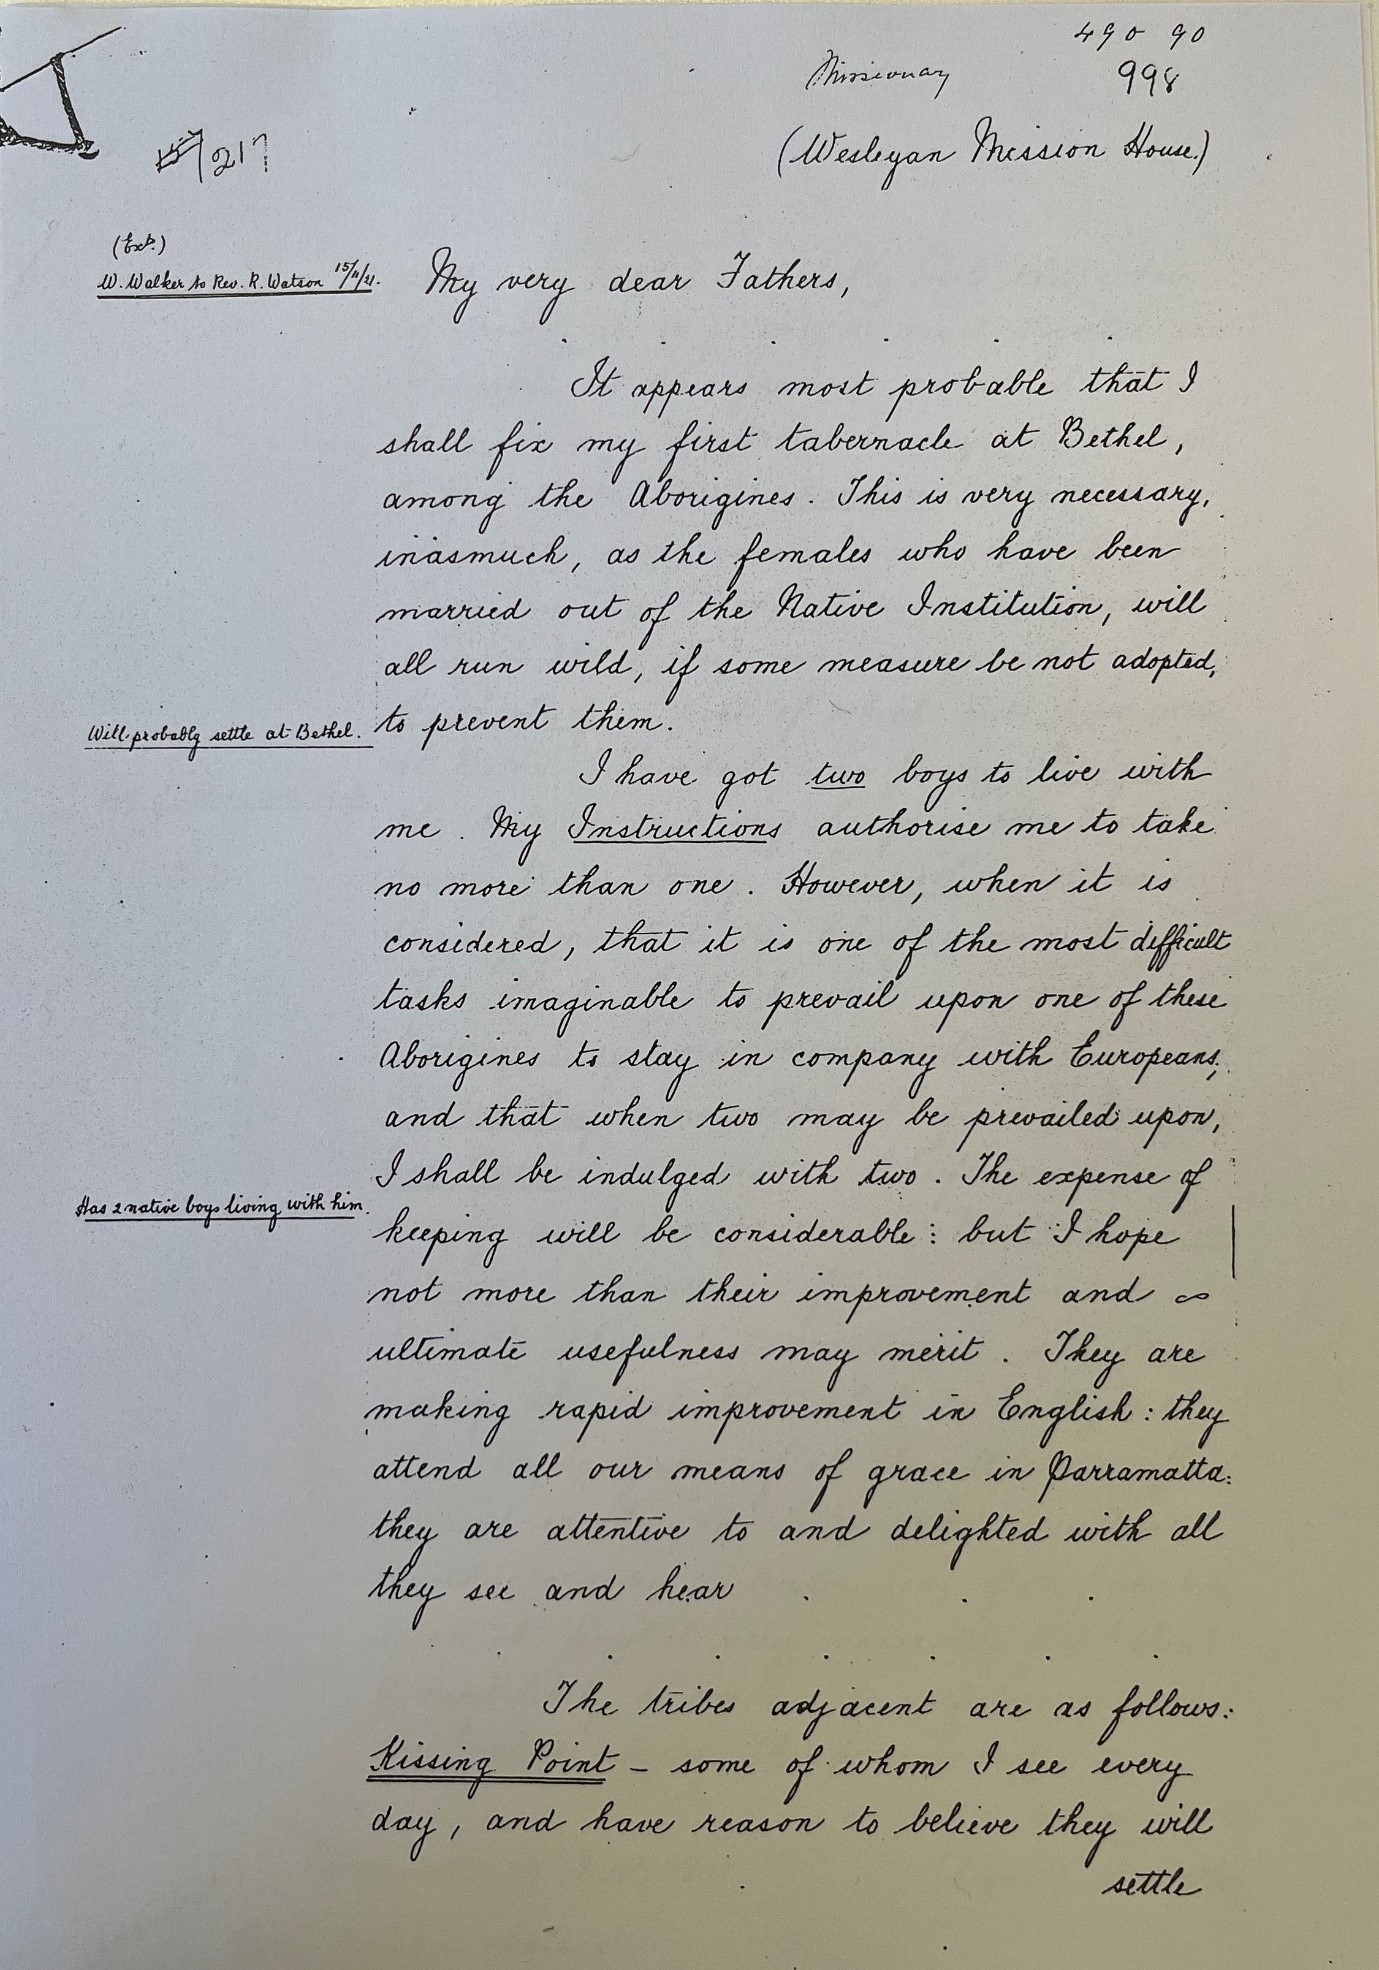 490 90
Missionary 998
(Wesleyan Mission House.)
/217
(Ext.)
W. Walker to Rev. R. Watson 15/11/21.
My very dear Fathers,
It appears most probable that I
shall fix my first tabernacle at Bethel,
among the Aborigines. This is very necessary,
inasmuch, as the females who have been
married out of the Native Institution, will
all run wild, if some measure be not adopted,
Will probably settle at Bethel.
to prevent them.
I have got two boys to live with
me. My Instructions authorise me to take
no more than one. However, when it is
considered, that it is one of the most difficult
tasks imaginable to prevail upon one of these
Aborigines to stay in company with Europeans,
and that when two may be prevailed upon,
I shall be indulged with two. The expense of
Has 2 native boys living with him.
keeping will be considerable: but I hope
not more than their improvement and
ultimate usefulness may merit. They are
making rapid improvement in English: they
attend all our means of grace in Parramatta:
they are attentive to and delighted with all
they see and hear . . .
. . . . . .
The tribes adjacent are as follows:
Kissing Point – some of whom I see every
day, and have reason to believe they will
settle